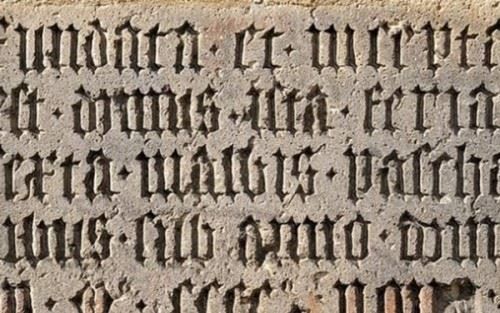 fundata · et · incepta
est · domus · ista · feria
exta · in albis · pasche
sub anno · domin